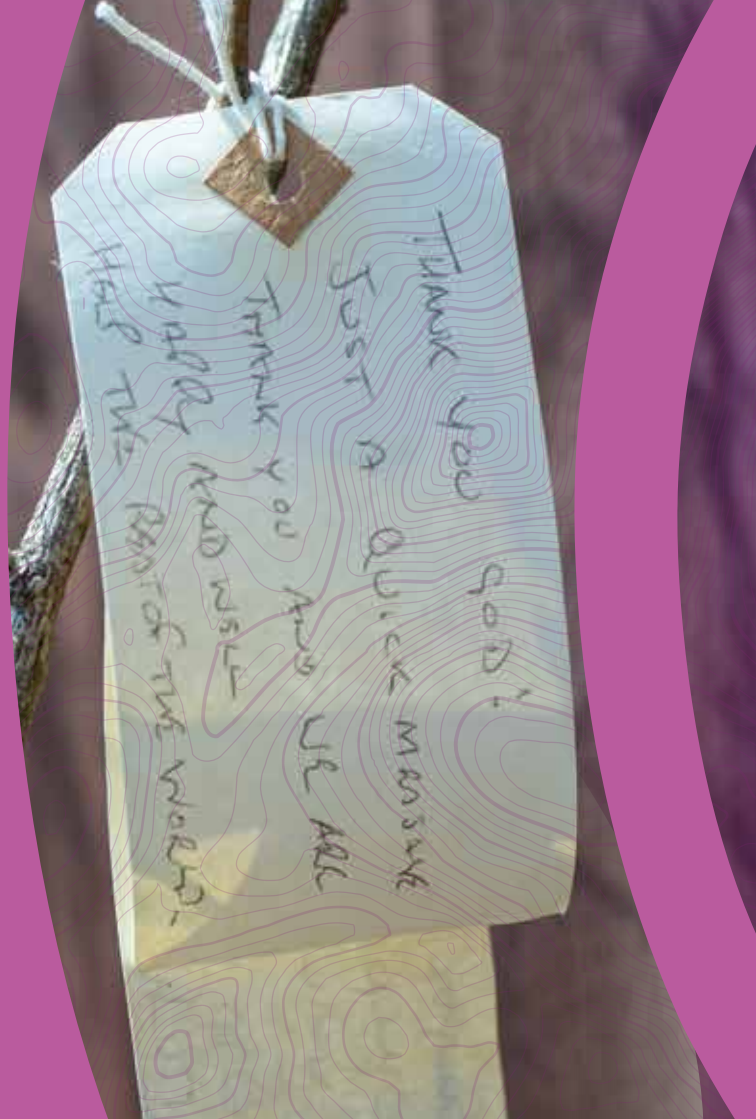 THANK YOU GOD!
JUST A QUICK MESSAGE
THANK YOU AND WE ARE
HAPPY AND WELL
HELP THE REST OF THE WORLD.